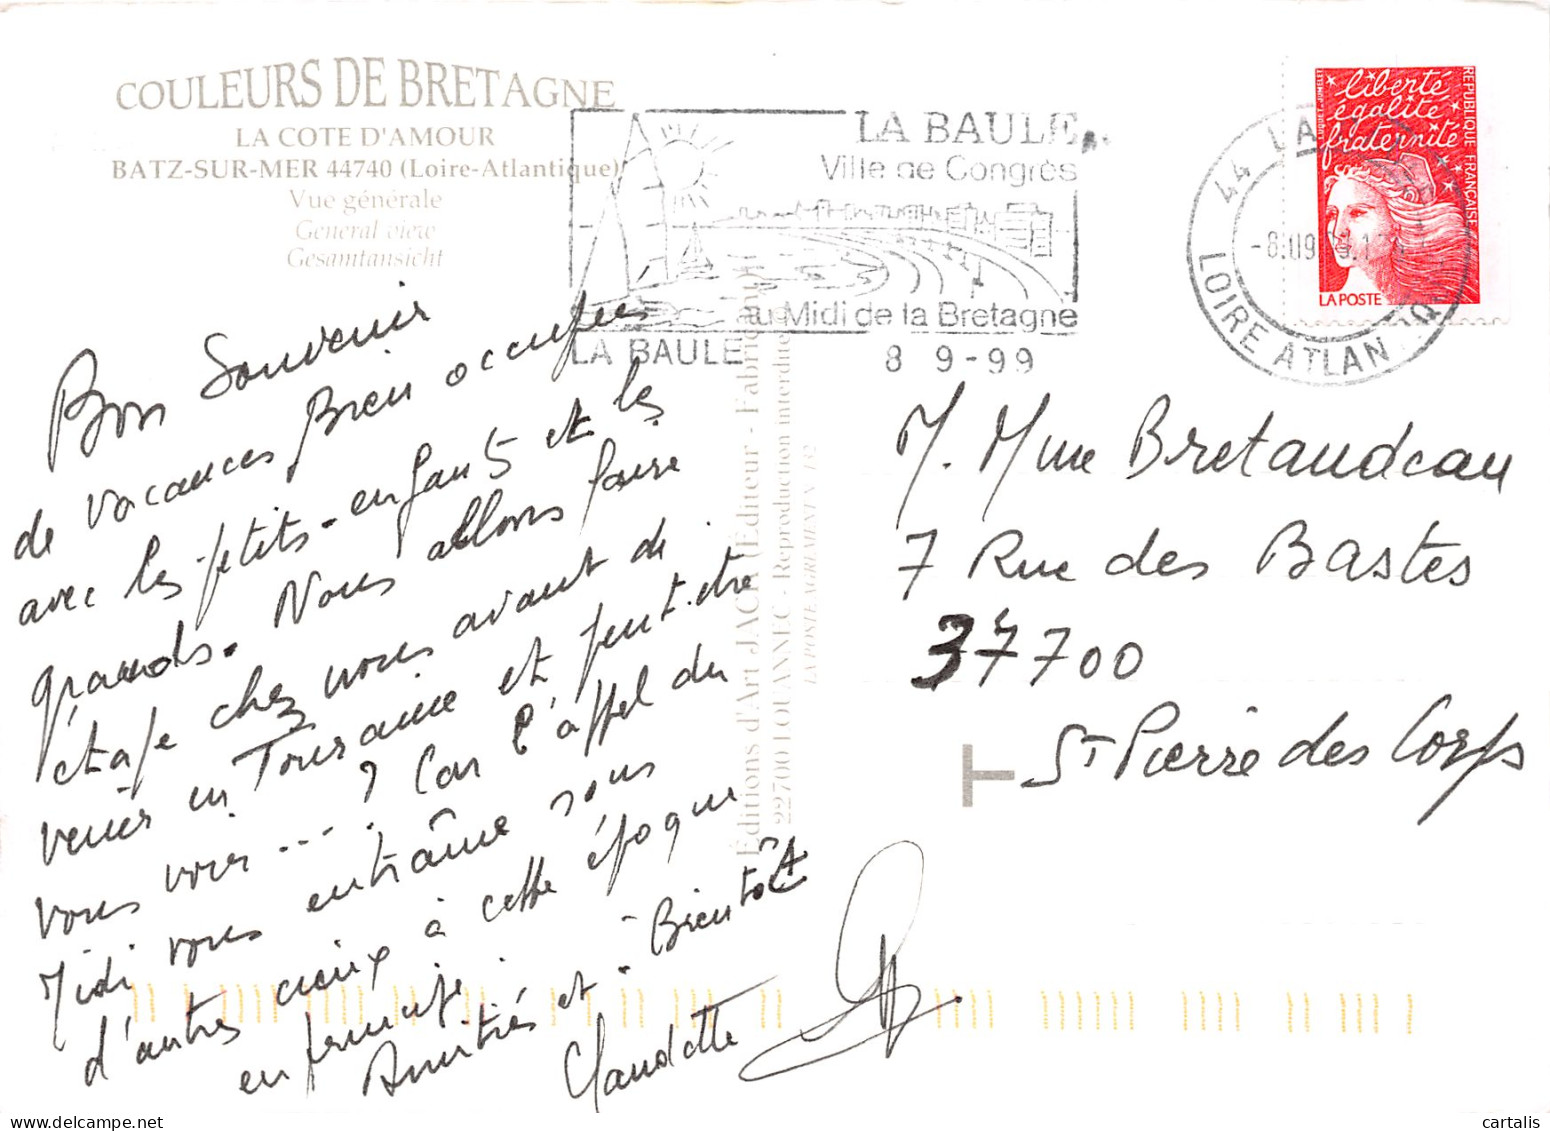 COULEURS DE BRETAGNE
LA COTE D'AMOUR
BATZ-SUR-MER 44740 (Loire-Atlantique)
Vue générale
General view
Gesamtansicht
LA BAULE
Ville de Congrès
au Midi de la Bretagne
LA BAULE
8 9-99
44 LA
LOIRE ATLAN
liberté
égalité
fraternité
RÉPUBLIQUE FRANÇAISE
LA POSTE
Bon Souvenir
de vacances bien occupées
avec les petits-enfants et les
grands. Nous allons faire
étape chez nous avant de
venir en Touraine et peut-être
vous voir ... ? Car l'appel du
Midi vous entraîne sous
d'autres cieux à cette époque
en principe.
Amitiés et à Bientôt
Claudette
Editions d'Art JACK Editeur - Fabriqué
22700 LOUANNEC - Reproduction interdite
LA POSTE AGREMENT N°
M. Mme Bretaudeau
7 Rue des Bastes
37700
St Pierre des Corps
cartalis